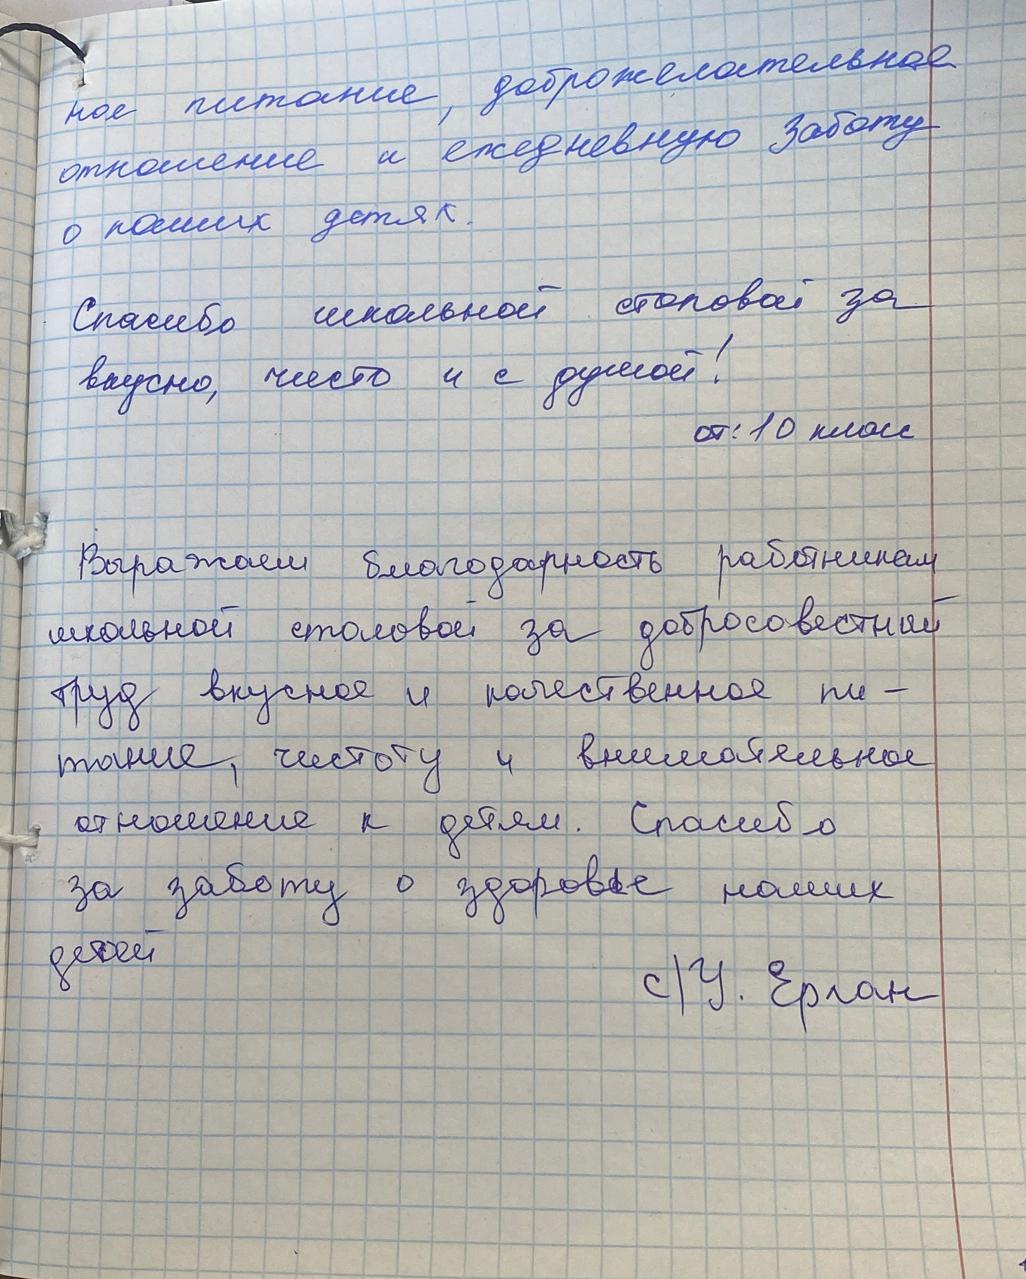 ное питание, доброжелательное
отношение и ежедневную заботу
о наших детях.
Спасибо школьной столовой за
вкусно, чисто и с душой!
от: 10 класс
Выражаем благодарность работникам
школьной столовой за добросовестный
труд вкусное и качественное пи-
тание, чистоту и внимательное
отношение к детям. Спасибо
за заботу о здоровье наших
детей
с/У. Ерлан